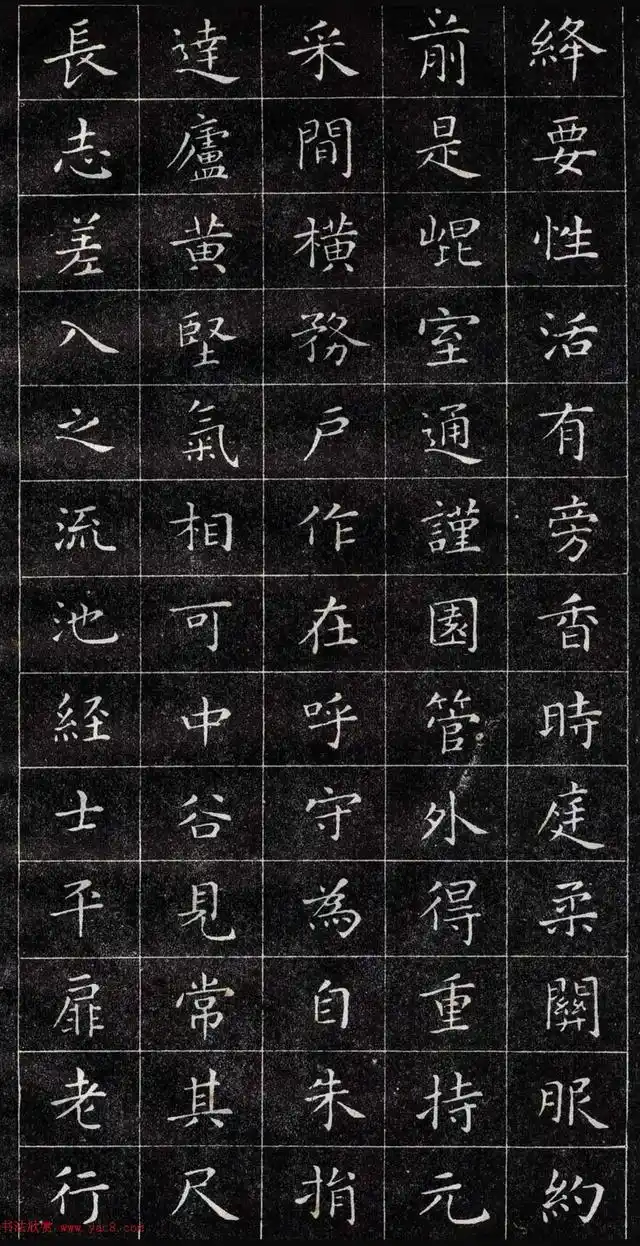 絳要性活有旁香時庭柔關服約
前是崐室通謹園管外得重持元
采間橫務戶作在呼守為自朱捐
達廬黃堅氣相可中谷見常其尺
長志差入之流池經士平扉老行
书法欣赏 www.yac8.com